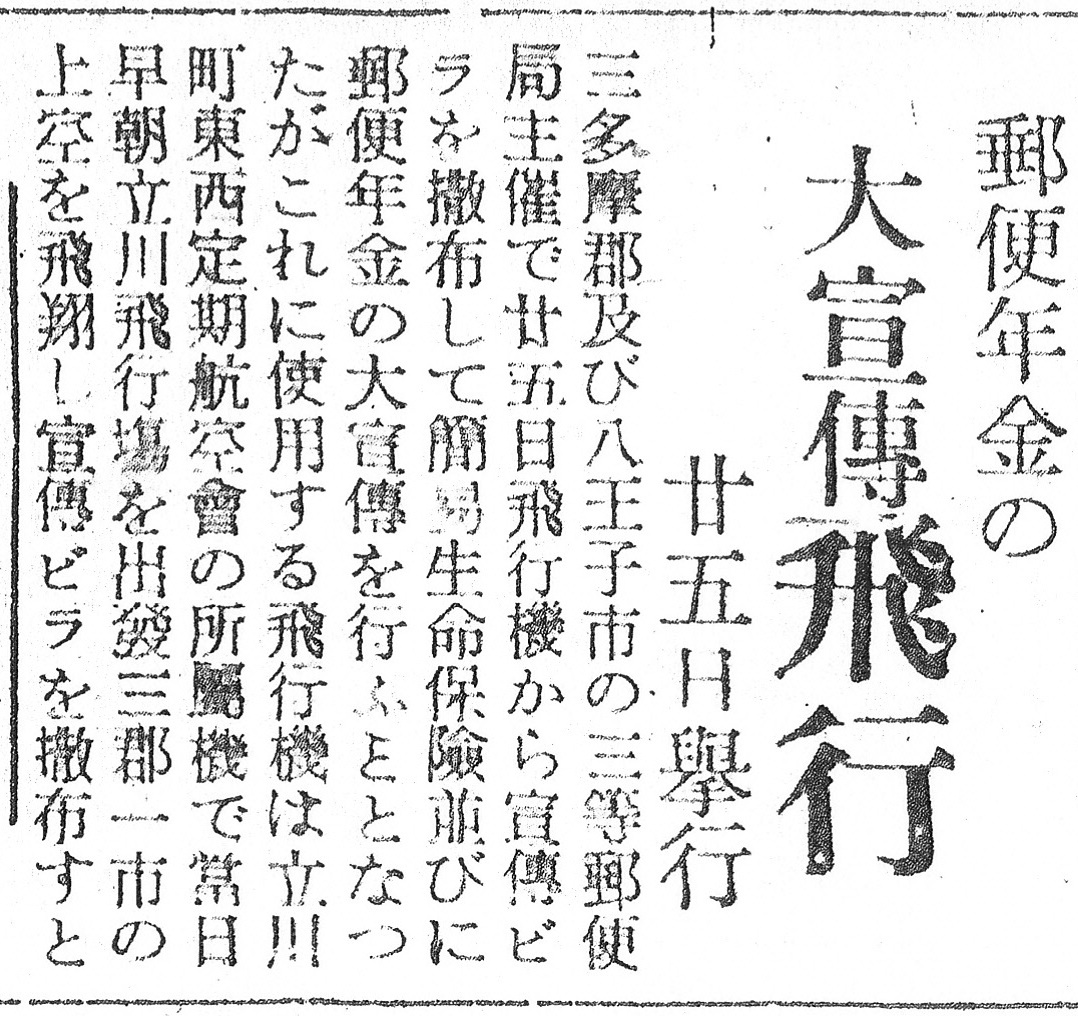 郵便年金の
大宣傳飛行
廿五日擧行
三多摩郡及び八王子市の三等郵便
局主催で廿五日飛行機から宣傳ビ
ラを撒布して簡易生命保險並びに
郵便年金の大宣傳を行ふことなつ
たがこれに使用する飛行機は立川
町東西定期航空會の所屬機で當日
早朝立川飛行場を出發三郡一市の
上空を飛翔し宣傳ビラを撒布すと